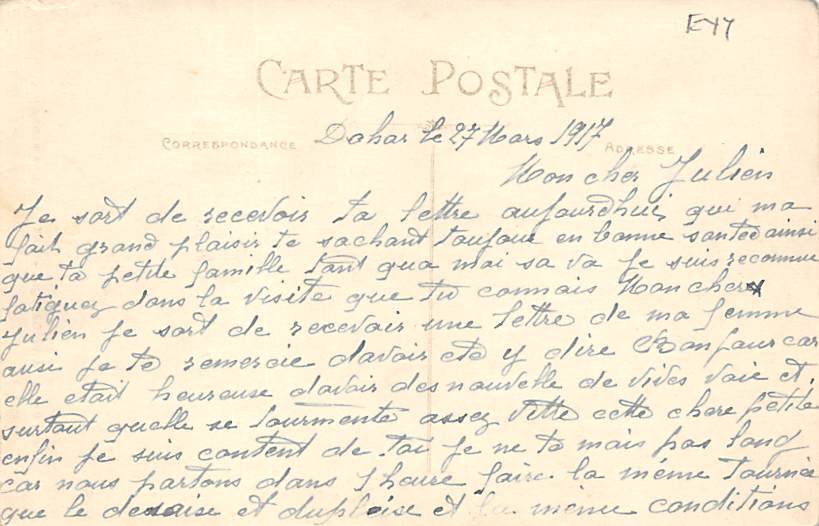 E47
CARTE POSTALE
CORRESPONDANCE
ADRESSE
Dakar le 27 Mars 1917
Mon cher Julien
Je sort de recevoir ta lettre aujourdhui qui ma
fait grand plaisir te sachant toujour en bonne santée ainsi
que ta petite famille tant qua moi sa va je suis reconnue
fatiguez dans la visite que tu connais Mon cher
Julien je sort de recevoir une lettre de ma femme
ausi je te remercie davoir ete y dire Bonjour car
elle etait heureuse davoir des nouvelle de vives voie et
surtout quelle se tourmente assez vitte cette chere petite
enfin je suis content de toi je ne te mais pas long
car nous partons dans 1 heure faire la même tournée
que le desaise et dupleise et la même conditions